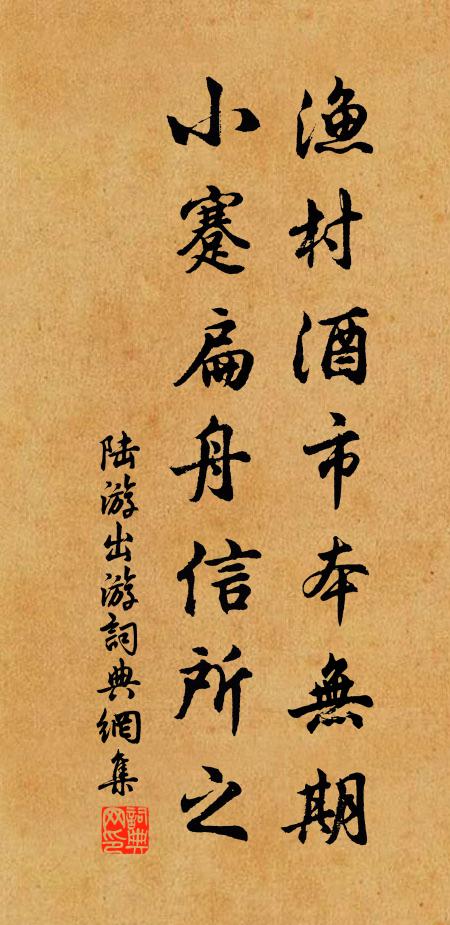 漁村酒市本無期
小蹇扁舟信所之
陸游出游詞典網集
詞典網印